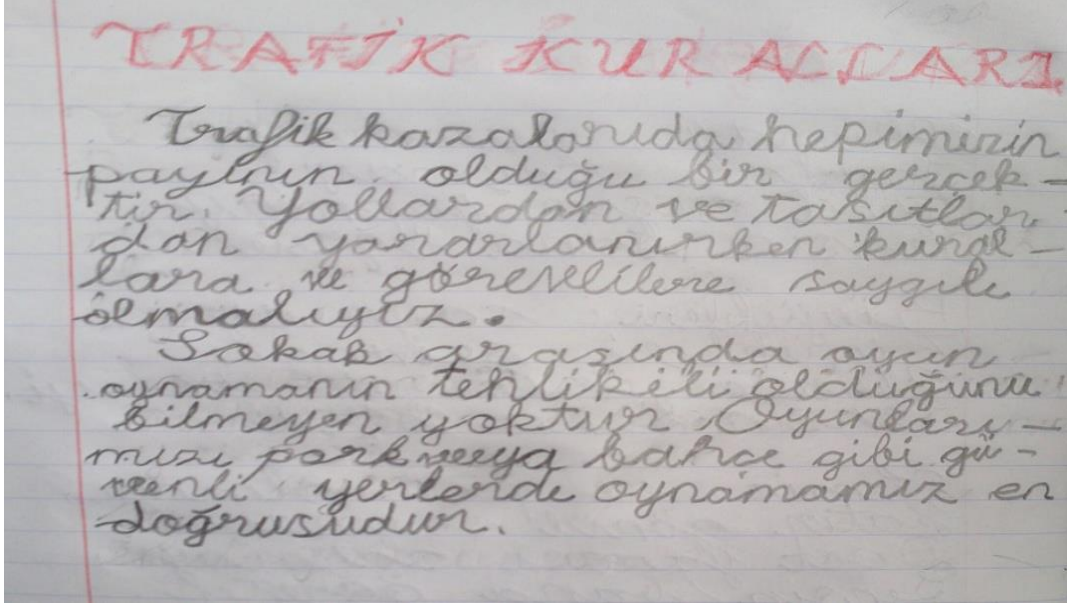 TRAFİK KURALLARI
Trafik kazalarıda hepimizin
payının olduğu bir gerçek-
tir. Yollardan ve taşıtlar-
dan yararlanırken kural-
lara ve görevlilere saygılı
olmalıyız.
Sokak arasında oyun
oynamanın tehlikeli olduğunu
bilmeyen yoktur. Oyunları-
mızı park veya bahçe gibi gü-
venli yerlerde oynamamız en
doğrusudur.